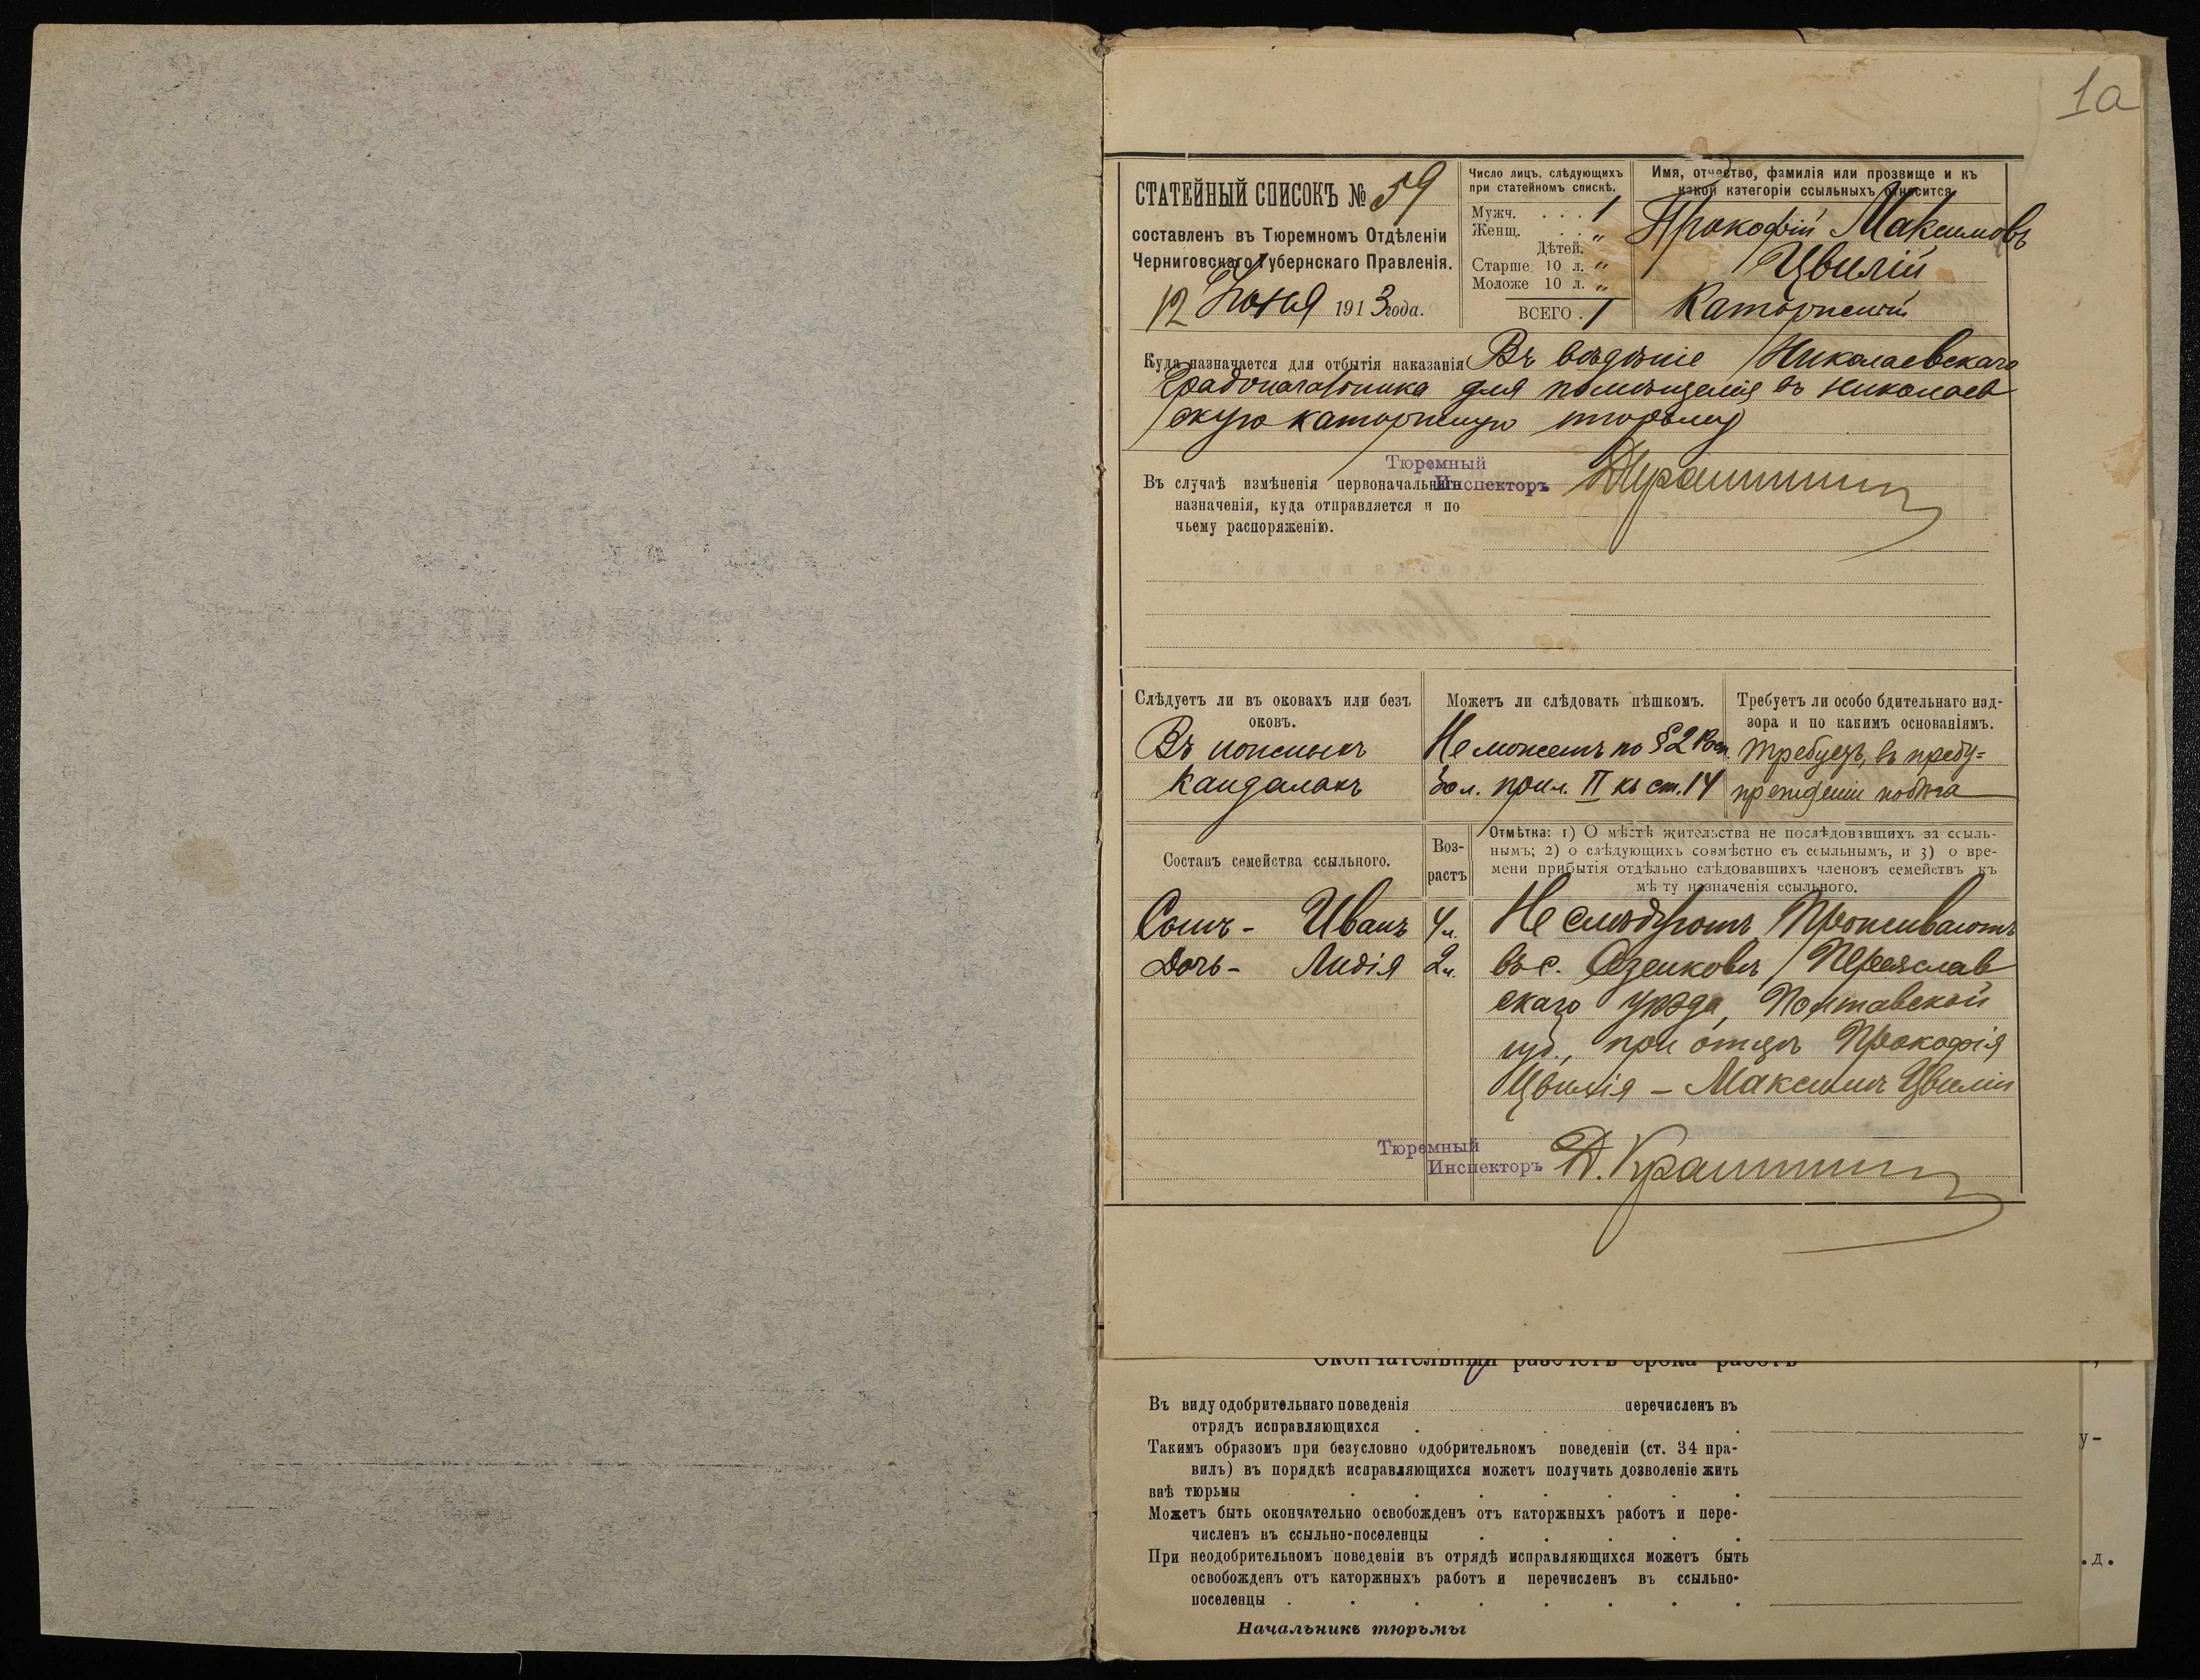 1а
СТАТЕЙНЫЙ СПИСОКЪ № 59
составленъ въ Тюремномъ Отдѣленіи
Черниговскаго Губернскаго Правленія.
12 Іюня 1913 года.
Число лицъ, слѣдующихъ
при статейномъ спискѣ.
Мужч. . . . 1
Женщ. . . „
Дѣтей.
Старше 10 л. „
Моложе 10 л. „
ВСЕГО . 1
Имя, отчество, фамилія или прозвище и къ
какой категоріи ссыльныхъ относится
Прокофій Максимовъ
Цвилій
Каторжный
Куда назначается для отбытія наказанія Въ вѣдѣніе Николаевскаго
Градоначальника для помѣщенія въ Николаев
скую каторжную тюрьму
Тюремный
Инспекторъ
Въ случаѣ измѣненія первоначальнаго
назначенія, куда отправляется и по
чьему распоряженію.
Слѣдуетъ ли въ оковахъ или безъ
оковъ.
Въ ножныхъ
кандалахъ
Можетъ ли слѣдовать пѣшкомъ.
Не можетъ по § 2 Росп.
бол. прил. II къ ст. 14
Требуетъ ли особо бдительнаго над-
зора и по какимъ основаніямъ.
Требуетъ, въ преду=
прежденіи побѣга
Составъ семейства ссыльного.
Воз-
растъ
Отмѣтка: 1) О мѣстѣ жительства не послѣдовавшихъ за ссыль-
нымъ; 2) о слѣдующихъ совмѣстно съ ссыльнымъ, и 3) о вре-
мени прибытія отдѣльно слѣдовавшихъ членовъ семействъ къ
мѣсту назначенія ссыльного.
Сынъ - Иванъ 4 л.
Дочь - Лидія 2 л.
Не слѣдуютъ. Проживаютъ
въ с. Озенковѣ, Переяслав
скаго уѣзда, Полтавской
губ., при отцѣ Прокофія
Цвилія — Максимѣ Цвиліи
Тюремный
Инспекторъ
Окончательный разсчетъ срока работъ
Въ виду одобрительнаго поведенія перечисленъ въ
отрядъ исправляющихся
Такимъ образомъ при безусловно одобрительномъ поведеніи (ст. 34 пра-
вилъ) въ порядкѣ исправляющихся можетъ получить дозволеніе жить
внѣ тюрьмы
Можетъ быть окончательно освобожденъ отъ каторжныхъ работъ и пере-
численъ въ ссыльно-поселенцы
При неодобрительномъ поведеніи въ отрядѣ исправляющихся можетъ быть
освобожденъ отъ каторжныхъ работъ и перечисленъ въ ссыльно-
поселенцы
Начальникъ тюрьмы
у-
.д.